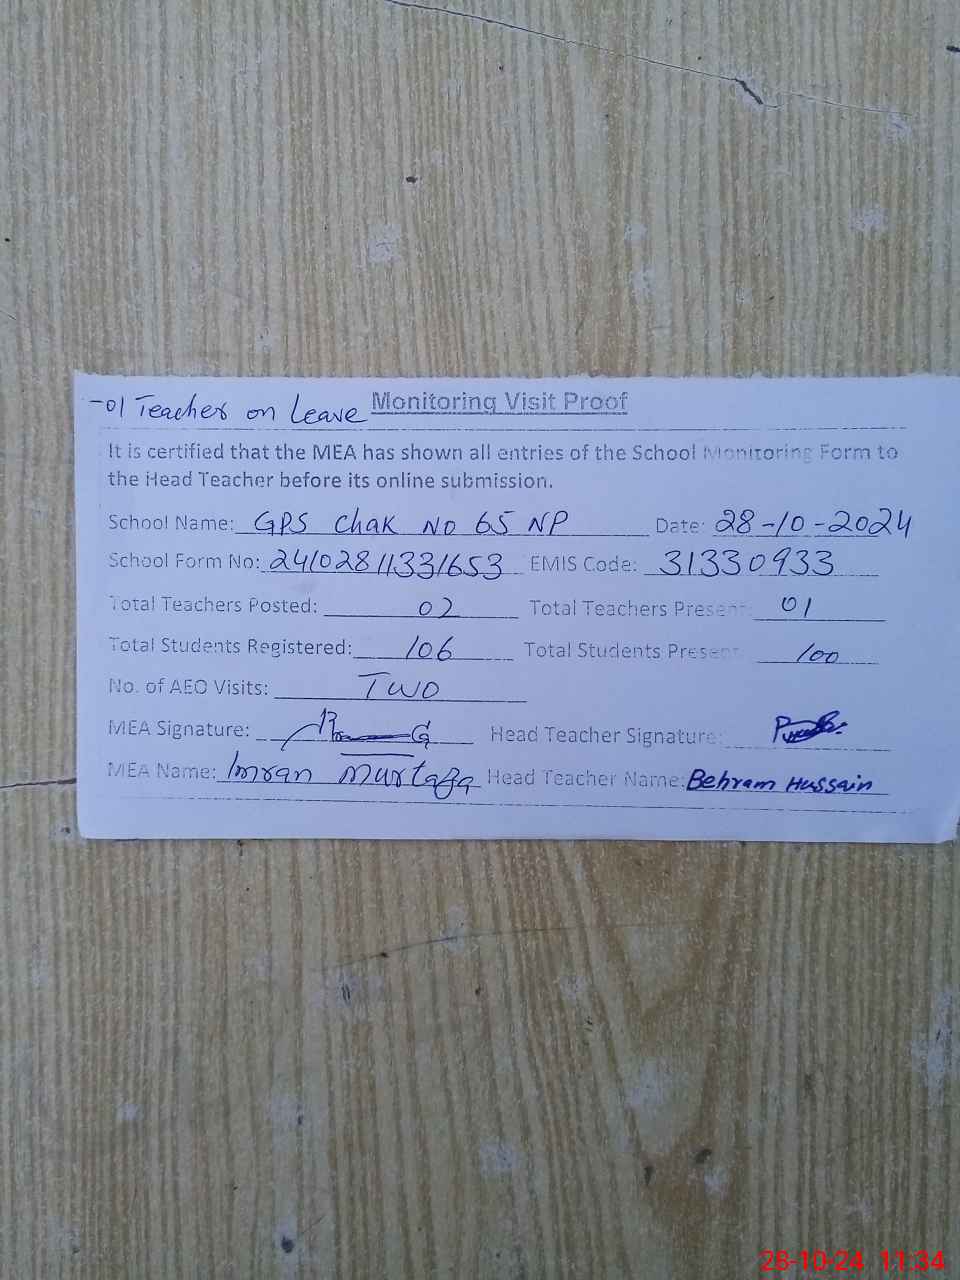 -01 Teacher on Leave Monitoring Visit Proof
It is certified that the MEA has shown all entries of the School Monitoring Form to
the Head Teacher before its online submission.
School Name: GPS Chak NO 65 NP Date: 28-10-2024
School Form No: 24102811331653 EMIS Code: 31330933
Total Teachers Posted: 02 Total Teachers Present: 01
Total Students Registered: 106 Total Students Present: 100
No. of AEO Visits: TWO
MEA Signature: Head Teacher Signature:
MEA Name: Imran Murtaza Head Teacher Name: Behram Hussain
28-10-24 11:34